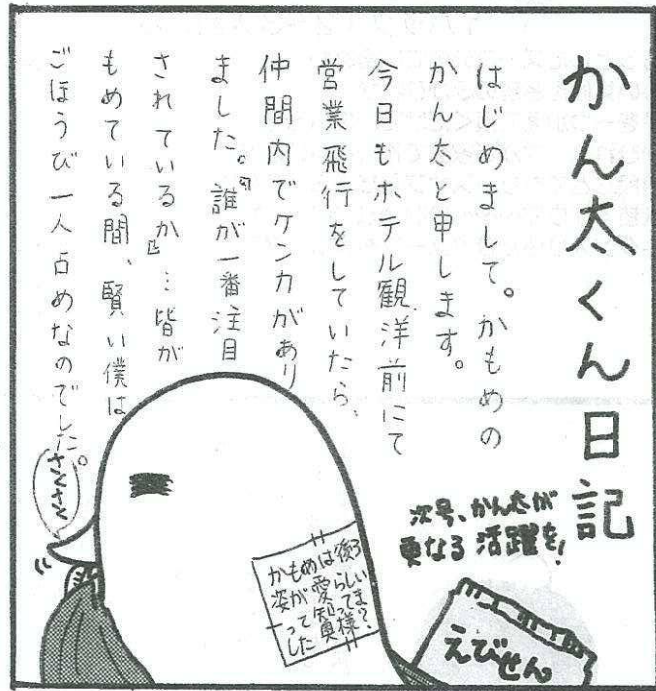 かん太くん日記
はじめまして。かもめの
かん太と申します。
今日もホテル観洋前にて
営業飛行をしていたら、
仲間内でケンカがあり
ました。『誰が一番注目
されているか』…皆が
もめている間、賢い僕は
ごほうび一人占めなのでした。
次号、かん太が
更なる活躍を!
えびせん